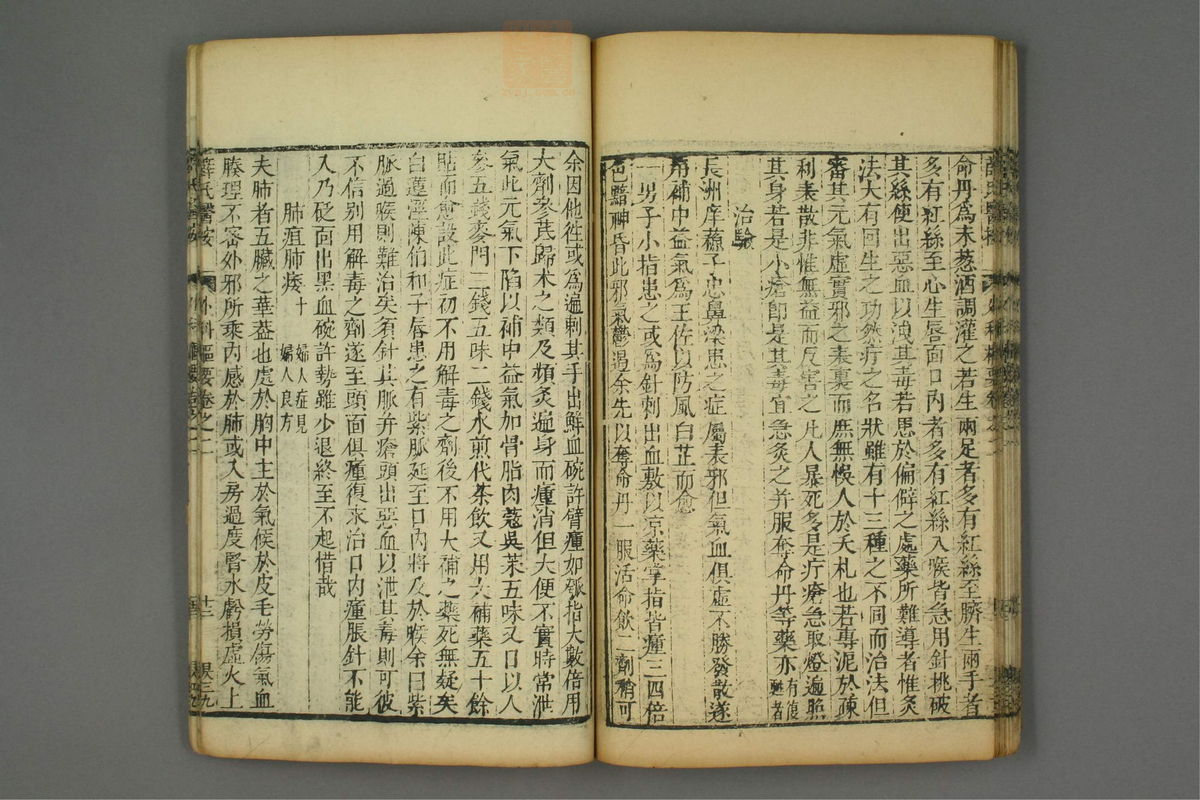 命丹爲末葱酒調灌之若生兩足者多有紅絲至臍生兩手者
多有紅絲至心生唇面口內者多有紅絲入喉皆急用針挑破
其絲使出惡血以洩其毒若患於偏僻之處藥所難導者惟灸
法大有回生之功然疔之名狀雖有十三種之不同而治法但
審其元氣虛實邪之表裏而庶無悞人於夭札也若專泥於疎
利表散非惟無益而反害之凡人暴死多是疔瘡急取燈遍照
其身若是小瘡即是其毒宜急灸之并服奪命丹等藥亦有復甦者
治驗
長洲庠蘇子忠鼻梁患之症屬表邪但氣血俱虛不勝發散遂
用補中益氣爲主佐以防風白芷而愈
一男子小指患之或爲針刺出血敷以凉藥掌指皆腫三四倍
色黯神昏此邪氣鬱遏余先以奪命丹一服活命飲二劑稍可
余因他徃或爲遍刺其手出鮮血碗許臂腫如瓠指大數倍用
大劑參芪歸术之類及頻灸遍身而腫消但大便不實時常泄
氣此元氣下陷以補中益氣加骨脂肉蔻吳茱五味又日以人
參五錢麥門二錢五味二錢水煎代茶飲又用大補藥五十餘
貼而愈設此症初不用解毒之劑後不用大補之藥死無疑矣
白蓮涇陳伯和子唇患之有紫脉延至口內將及於喉余曰紫
脉過喉則難治矣須針其脉并瘡頭出惡血以泄其毒則可彼
不信别用解毒之劑遂至頭面俱腫復來治口內腫脹針不能
入乃砭面出黑血碗許勢雖少退終至不起惜哉
肺疽肺痿十 婦人症見婦人良方
夫肺者五臟之華蓋也處於胸中主於氣候於皮毛勞傷氣血
腠理不審外邪所乘內感於肺或入房過度腎水虧損虛火上
薛氏醫按 外科樞要卷之二 十二